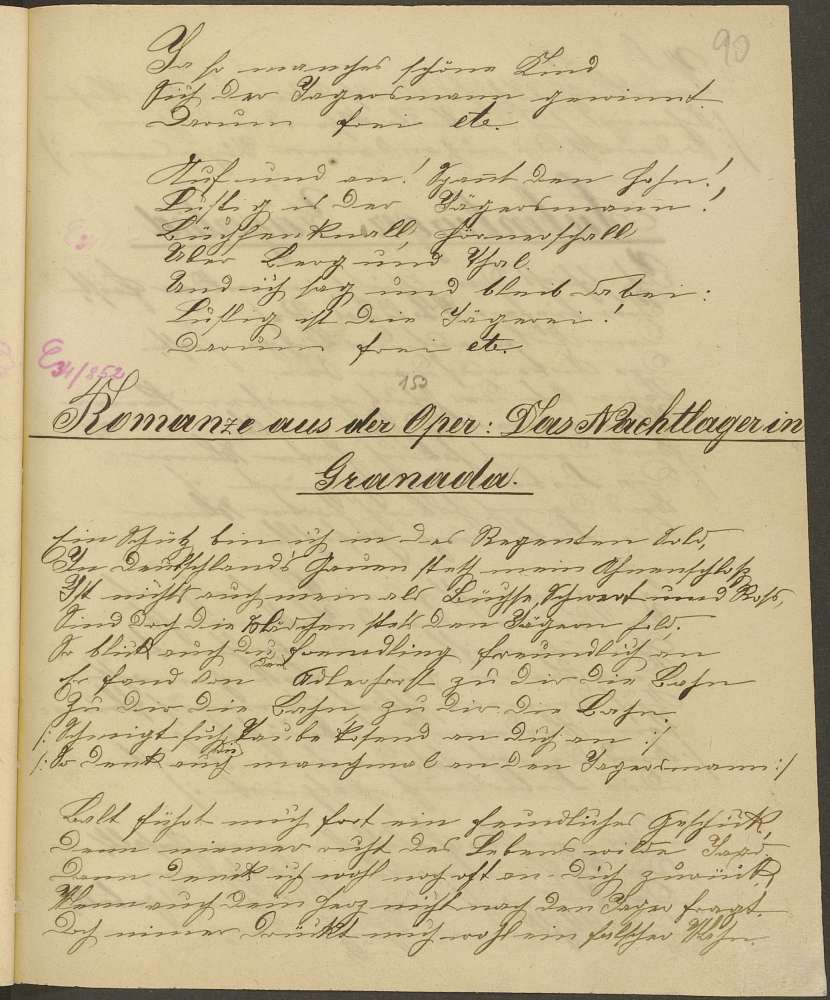 90
Ja so manches schöne Kind
Sich der Jagersmann gewinnt.
Darum frei etc.
Auf und an! Spannt den Hahn!
Lustig is der Jägersmann!
Büchsenknall, Hörnerschall
Über Berg und Thal.
Und ich sag und bleib dabei:
Lustig ist die Jägerei!
Darum frei etc.
E 34/852
150
Romanze aus der Oper: Das Nachtlager in
Granada.
Ein Schütz bin ich in des Regenten Sold,
In Deutschlands Gauen steht mein Ahnenschloß
Ist nichts auch mein als Büchse, Schwert und Roß,
Sind doch die Mädchen stets den Jägern hold,
So blick auch du fremdling freundlich an
Er fand von den Adlerhorst zu dir die Bahn
Zu dir die Bahn, zu dir die Bahn.
/: Schmigt sich Taube kosend an dich an :/
/: So denk auch Du manchmal an den Jagersmann :/
Balt führt mich fort ein feundliches Geschick,
Denn nimmer ruht des Lebens wilde Jagd,
Dann denck ich wohl noch oft an dich zurück,
Wenn auch dein Herz nicht nach den Jager fragt.
Doch nimmer drückt mich wohl ein falscher Wahn